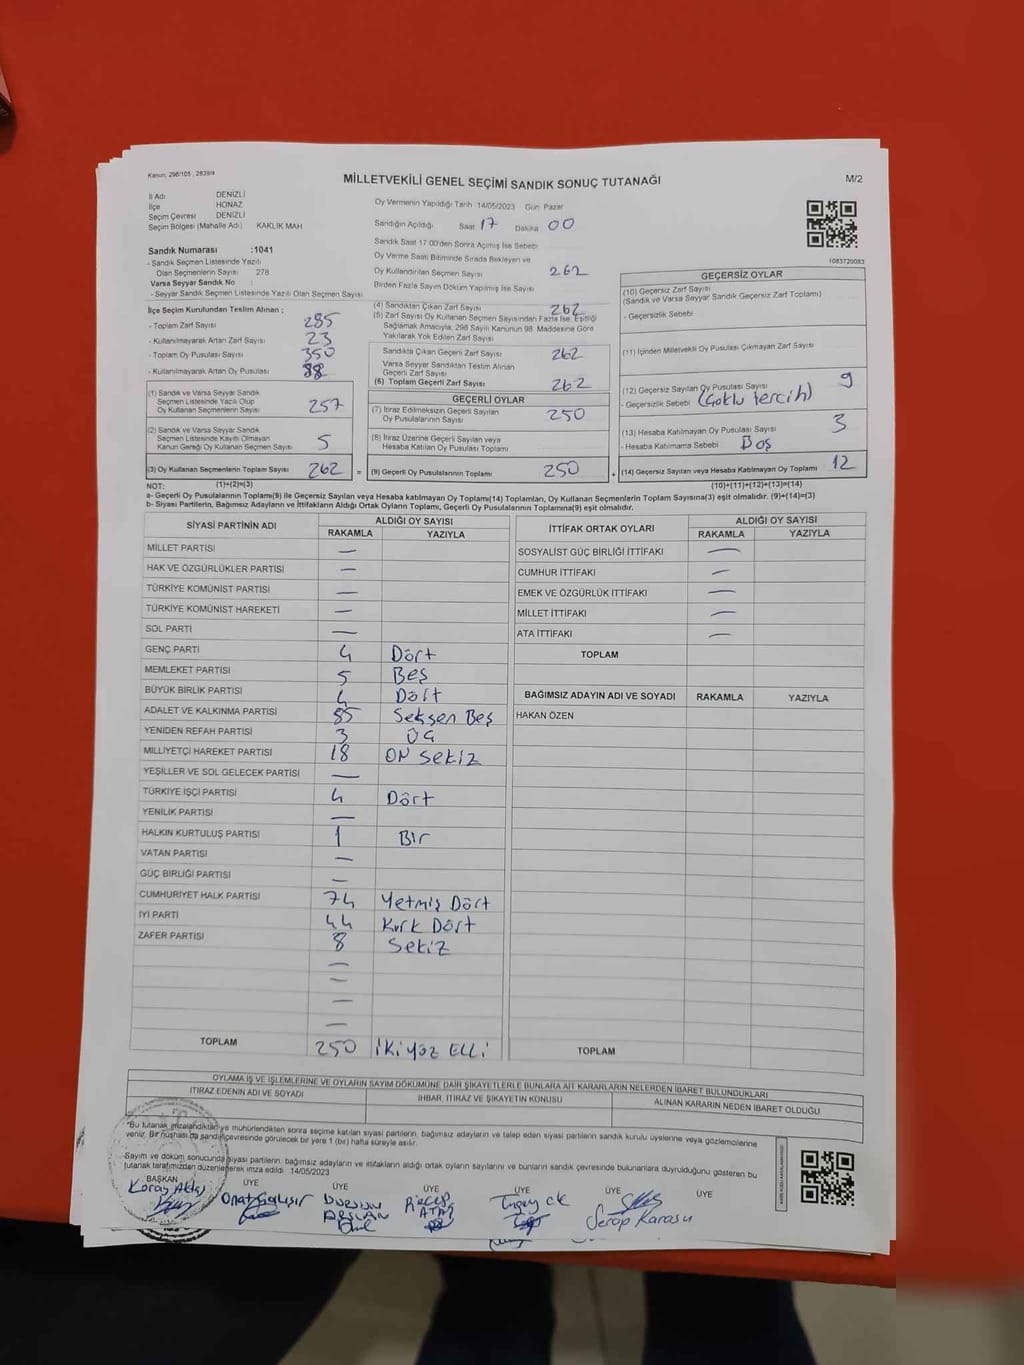 Kanun: 298/105 , 2839/4
MİLLETVEKİLİ GENEL SEÇİMİ SANDIK SONUÇ TUTANAĞI
M/2
İl Adı DENİZLİ
İlçe HONAZ
Seçim Çevresi DENİZLİ
Seçim Bölgesi (Mahalle Adı) KAKLIK MAH
Sandık Numarası :1041
- Sandık Seçmen Listesinde Yazılı
Olan Seçmenlerin Sayısı 278
Varsa Seyyar Sandık No :
- Seyyar Sandık Seçmen Listesinde Yazılı Olan Seçmen Sayısı
İlçe Seçim Kurulundan Teslim Alınan ;
- Toplam Zarf Sayısı 285
- Kullanılmayarak Artan Zarf Sayısı 23
- Toplam Oy Pusulası Sayısı 350
- Kullanılmayarak Artan Oy Pusulası 88
(1) Sandık ve Varsa Seyyar Sandık
Seçmen Listesinde Yazılı Olup
Oy Kullanan Seçmenlerin Sayısı 257
(2) Sandık ve Varsa Seyyar Sandık
Seçmen Listesinde Kayıtlı Olmayan
Kanun Gereği Oy Kullanan Seçmen Sayısı 5
(3) Oy Kullanan Seçmenlerin Toplam Sayısı 262 =
Oy Vermenin Yapıldığı Tarih 14/05/2023 Gün Pazar
Sandığın Açıldığı Saat 17 Dakika 00
Sandık Saat 17.00'den Sonra Açılmış İse Sebebi
Oy Verme Saati Bitiminde Sırada Bekleyen ve
Oy Kullandırılan Seçmen Sayısı 262
Birden Fazla Sayım Döküm Yapılmış İse Sayısı
(4) Sandıktan Çıkan Zarf Sayısı 262
(5) Zarf Sayısı Oy Kullanan Seçmen Sayısından Fazla İse, Eşitliği
Sağlamak Amacıyla, 298 Sayılı Kanunun 98. Maddesine Göre
Yakılarak Yok Edilen Zarf Sayısı
Sandıkta Çıkan Geçerli Zarf Sayısı 262
Varsa Seyyar Sandıktan Teslim Alınan
Geçerli Zarf Sayısı
(6) Toplam Geçerli Zarf Sayısı 262
GEÇERLİ OYLAR
(7) İtiraz Edilmeksizin Geçerli Sayılan
Oy Pusulalarının Sayısı 250
(8) İtiraz Üzerine Geçerli Sayılan veya
Hesaba Katılan Oy Pusulası Toplamı
(9) Geçerli Oy Pusulalarının Toplamı 250 +
1083720083
GEÇERSİZ OYLAR
(10) Geçersiz Zarf Sayısı
(Sandık ve Varsa Seyyar Sandık Geçersiz Zarf Toplamı)
- Geçersizlik Sebebi
(11) İçinden Milletvekili Oy Pusulası Çıkmayan Zarf Sayısı
(12) Geçersiz Sayılan Oy Pusulası Sayısı 9
- Geçersizlik Sebebi (Çoklu tercih)
(13) Hesaba Katılmayan Oy Pusulası Sayısı 3
- Hesaba Katılmama Sebebi Boş
(14) Geçersiz Sayılan veya Hesaba Katılmayan Oy Toplamı 12
NOT: (1)+(2)=(3) (10)+(11)+(12)+(13)=(14)
a- Geçerli Oy Pusulalarının Toplamı(9) ile Geçersiz Sayılan veya Hesaba katılmayan Oy Toplamı(14) Toplamları, Oy Kullanan Seçmenlerin Toplam Sayısına(3) eşit olmalıdır. (9)+(14)=(3)
b- Siyasi Partilerin, Bağımsız Adayların ve İttifakların Aldığı Ortak Oyların Toplamı, Geçerli Oy Pusulalarının Toplamına(9) eşit olmalıdır.
SİYASİ PARTİNİN ADI ALDIĞI OY SAYISI
RAKAMLA YAZIYLA
MİLLET PARTİSI —
HAK VE ÖZGÜRLÜKLER PARTİSİ —
TÜRKİYE KOMÜNİST PARTİSİ —
TÜRKİYE KOMÜNİST HAREKETİ —
SOL PARTİ —
GENÇ PARTİ 4 Dört
MEMLEKET PARTİSİ 5 Beş
BÜYÜK BİRLİK PARTİSİ 4 Dört
ADALET VE KALKINMA PARTİSİ 85 Seksen Beş
YENİDEN REFAH PARTİSİ 3 ÜÇ
MİLLİYETÇİ HAREKET PARTİSİ 18 ON Sekiz
YEŞİLLER VE SOL GELECEK PARTİSİ —
TÜRKİYE İŞÇİ PARTİSİ 4 Dört
YENİLİK PARTİSİ —
HALKIN KURTULUŞ PARTİSİ 1 Bir
VATAN PARTİSİ —
GÜÇ BİRLİĞİ PARTİSİ —
CUMHURİYET HALK PARTİSİ 74 Yetmiş Dört
İYİ PARTİ 44 Kırk Dört
ZAFER PARTİSİ 8 Sekiz
—
—
—
—
TOPLAM 250 İkiyüz ELLİ
İTTİFAK ORTAK OYLARI ALDIĞI OY SAYISI
RAKAMLA YAZIYLA
SOSYALİST GÜÇ BİRLİĞİ İTTİFAKI —
CUMHUR İTTİFAKI —
EMEK VE ÖZGÜRLÜK İTTİFAKI —
MİLLET İTTİFAKI —
ATA İTTİFAKI —
TOPLAM
BAĞIMSIZ ADAYIN ADI VE SOYADI RAKAMLA YAZIYLA
HAKAN ÖZEN
TOPLAM
OYLAMA İŞ VE İŞLEMLERİNE VE OYLARIN SAYIM DÖKÜMÜNE DAİR ŞİKAYETLERLE BUNLARA AİT KARARLARIN NELERDEN İBARET BULUNDUKLARI
İTİRAZ EDENİN ADI VE SOYADI İHBAR, İTİRAZ VE ŞİKAYETİN KONUSU ALINAN KARARIN NEDEN İBARET OLDUĞU
*Bu tutanak imzalandıktan ve mühürlendikten sonra seçime katılan siyasi partilerin, bağımsız adayların ve talep edan siyasi partilerin sandık kurulu üyelerine veya gözlemcilerine
verilir. Bir nüshası da sandık çevresinde görülecek bir yere 1 (bir) hafta süreyle asılır.
Sayım ve döküm sonucunda siyasi partilerin, bağımsız adayların ve ittifakların aldığı ortak oyların sayılarını ve bunların sandık çevresinde bulunanlara duyrulduğunu gösteren bu
tutanak tarafımızdan düzenlenerek imza edildi. 14/05/2023
BAŞKAN ÜYE ÜYE ÜYE ÜYE ÜYE ÜYE
Koray Aktaş Onat Çalışır DURSUN ARSLAN Recep ATAŞ Serap Karasu